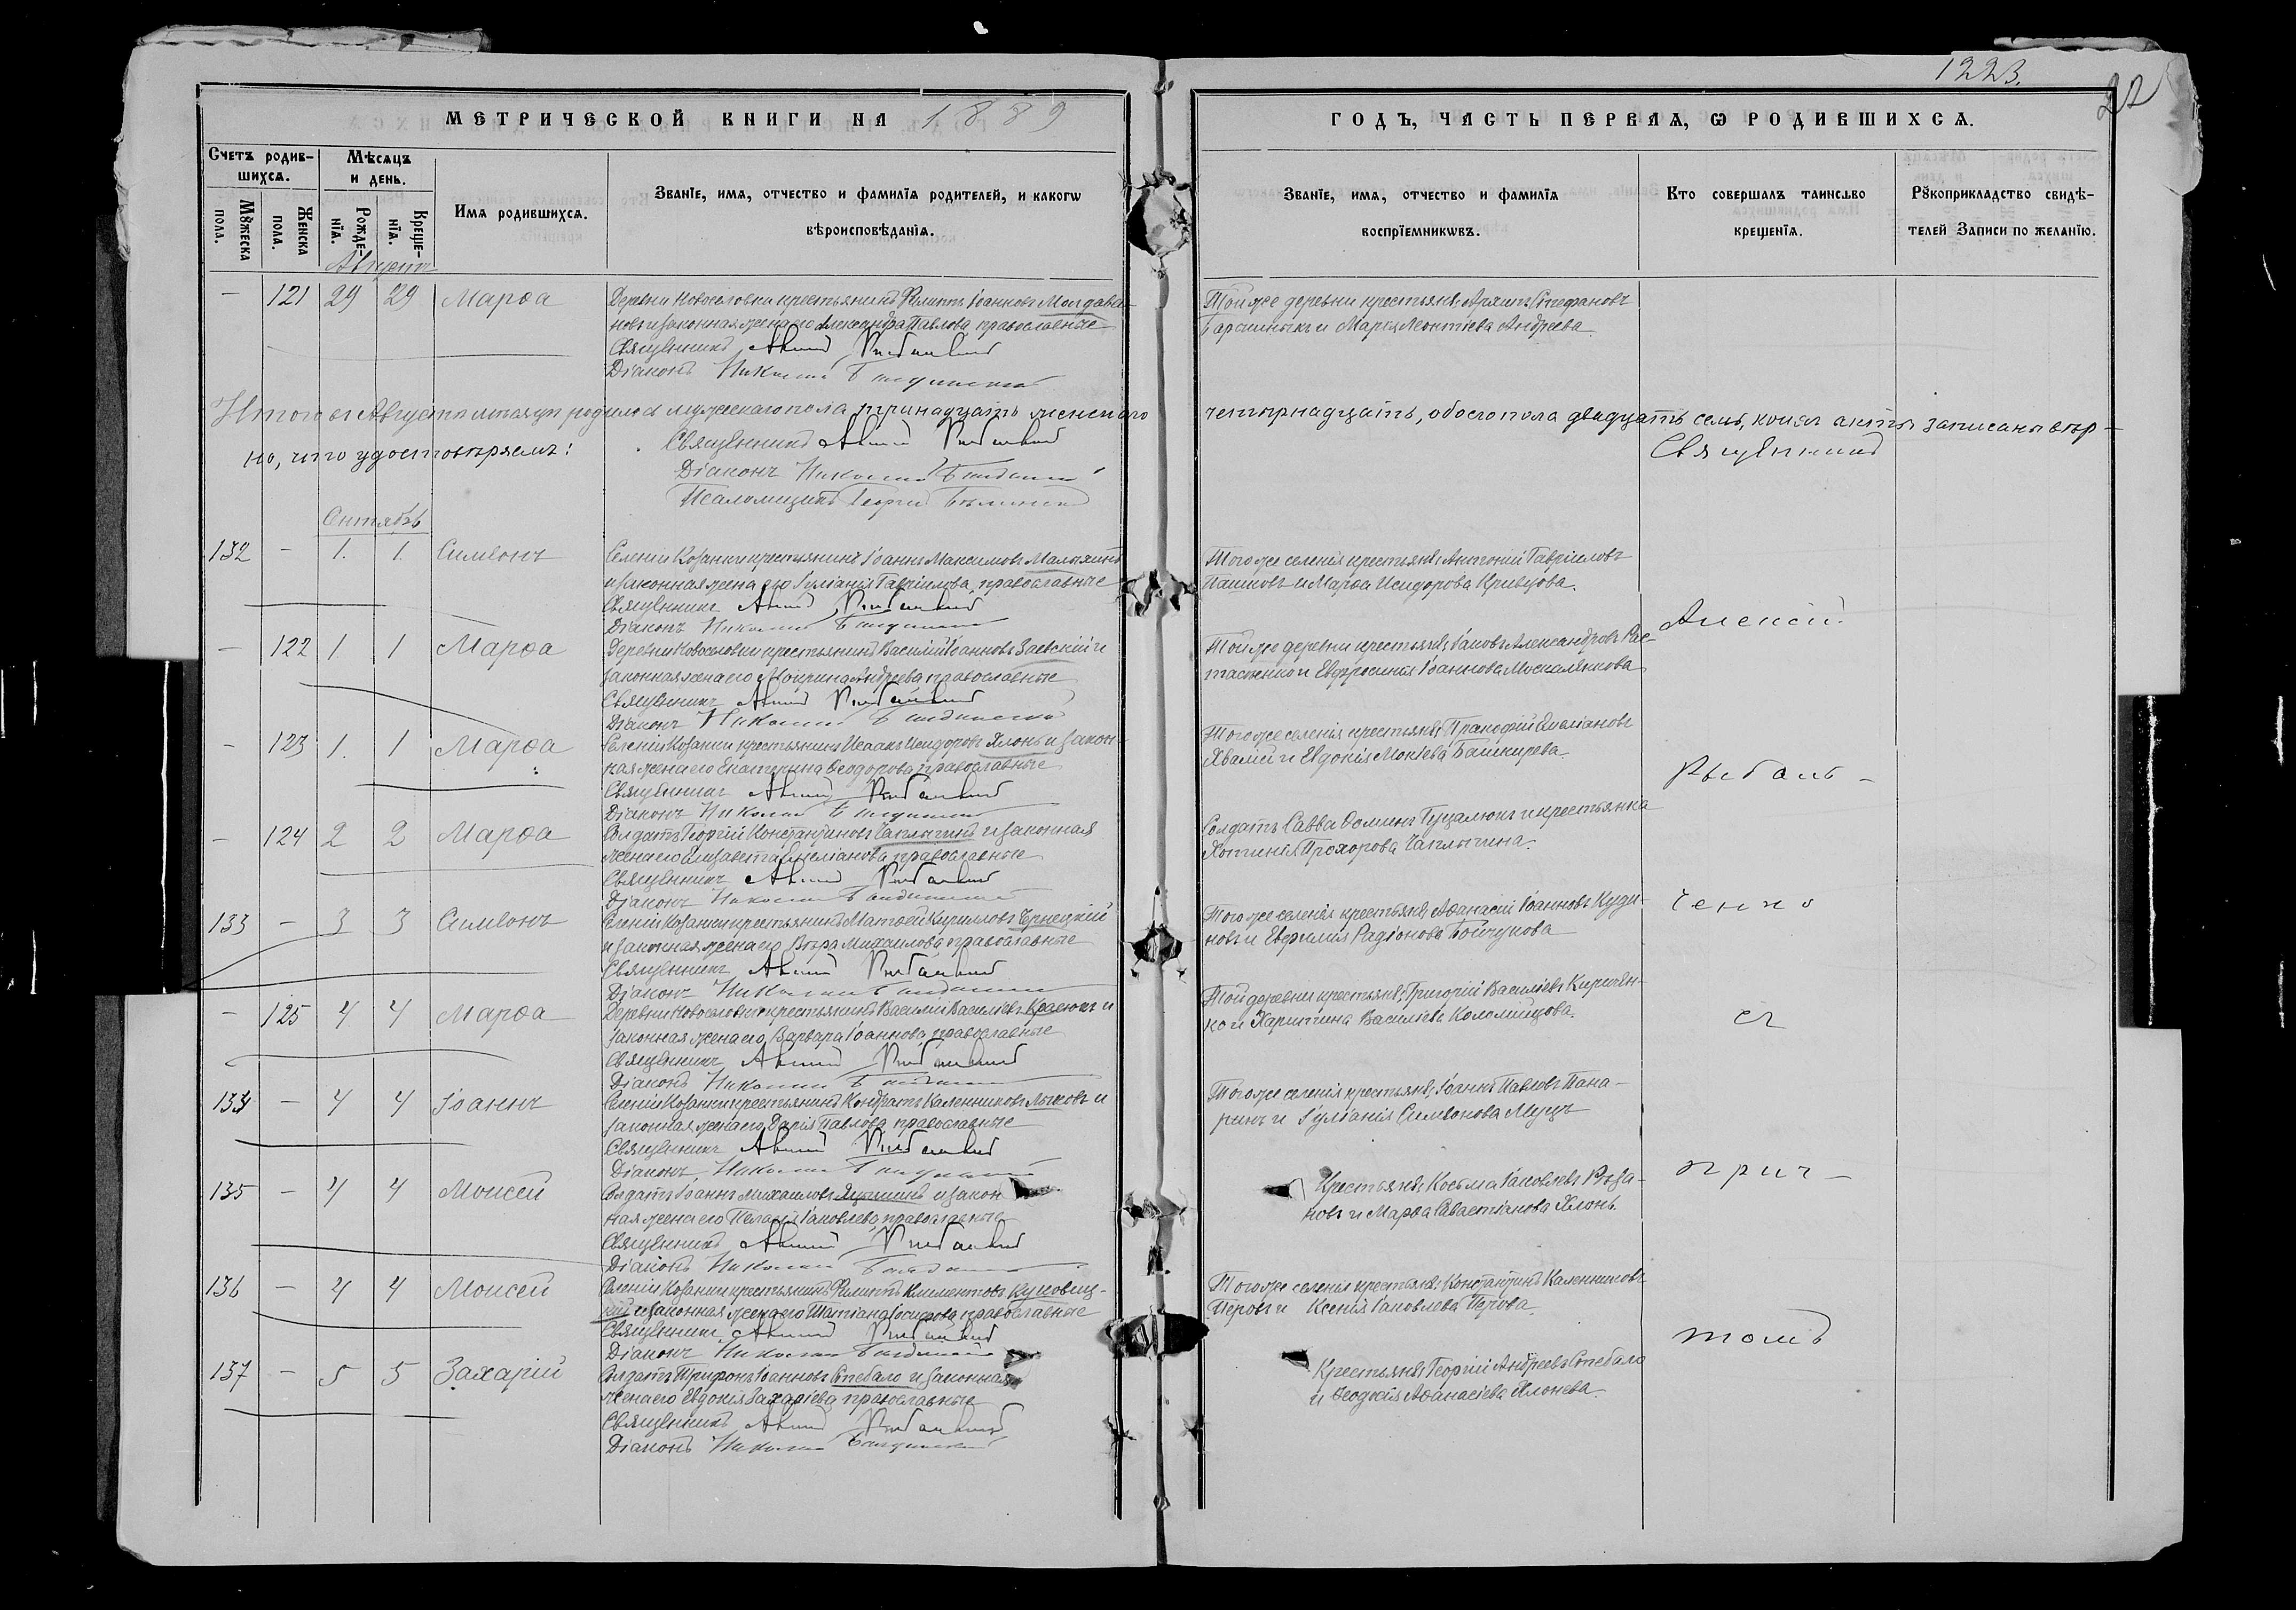 1223.
22
МЕТРИЧЕСКОЙ КНИГИ НА 1889
ГОДЪ, ЧАСТЬ ПЕРВАЯ, Ѡ РОДИВШИХСѦ.
Счетъ родив-
шихсѧ.
Мѣсѧцъ
и день.
Мꙋжеска
пола.
Женска
пола.
Рожде-
нїѧ.
Креще-
нїѧ.
Имѧ родившихсѧ.
Званїе, имѧ, отчество и фамилїѧ родителей, и какогѡ
вѣроисповѣданїѧ.
Званїе, имѧ, отчество и фамилїѧ
воспрїемникѡвъ.
Кто совершалъ таинство
крещенїѧ.
Рꙋкоприкладство свидѣ-
телей Записи по желанїю.
Августъ
— 121 29 29 Марѳа
Деревни Новоселовки крестьянинъ Филиппъ Іоанновъ Молдава-
новъ и законная жена его Александра Павлова, православные
Священникъ
Діаконъ Николай
Той же деревни крестьяне: Архипъ Стефановъ
и Марія Леонтіева Андреева
Итого въ Августѣ мѣсяцѣ родилось мужескаго пола тринадцать женскаго
четырнадцать, обоего пола двадцать семь, коихъ акты записаны вѣр-
но, что удостовѣряемъ:
Священникъ
Діаконъ Николай
Псаломщикъ Георгій
Священникъ
Сентябрь
132 — 1. 1. Симеонъ
Селенія Козанки крестьянинъ Іоаннъ Максимовъ
и законная жена его Іуліанія Гавріилова, православные
Священникъ
Діаконъ Николай
Того же селенія крестьяне: Антоній Гавріиловъ
Пашковъ и Марѳа Исидорова Кривцова.
Алексій
— 122 1 1 Марѳа
Деревни Новоселовки крестьянинъ Василій Іоанновъ Заевскій и
законная жена его Андреева православные
Священникъ
Діаконъ Николай
Той же деревни крестьяне: Іаковъ Александровъ
и Евфросинія Іоаннова Москалянова
— 123 1. 1 Марѳа
Селенія Козанки крестьянинъ Исаакъ Исидоровъ Хлонь и закон-
ная жена его Екатерина Ѳеодорова православные
Священникъ
Діаконъ Николай
Того же селенія крестьяне: Прокофій Емеліановъ
и Евдокія Мокіева Башкирева.
Рыбаль-
— 124 2 2 Марѳа
Солдатъ Георгій Константиновъ Чаплыгинъ и законная
жена его Елизавета Емеліанова православные
Священникъ
Діаконъ Николай
Солдатъ Савва Ѳоминъ Гуцалюкъ и крестьянка
Прохорова Чаплыгина.
133 — 3 3 Симеонъ
Селенія Козанки крестьянинъ Матѳей Кирилловъ Чернецкій
и законная жена его Вѣра Михаилова православные
Священникъ
Діаконъ Николай
Того же селенія крестьяне: Аѳанасій Іоанновъ Куди-
новъ и Евфимія Радіонова Бойчукова
ченко
— 125 4 4 Марѳа
Деревни Новоселовки крестьянинъ Василій Василіевъ Красюкъ и
законная жена его Варвара Іоаннова, православные
Священникъ
Діаконъ Николай
Той деревни крестьяне: Григорій Василіевъ Киричен-
ко и Харитина Василіева Коломійцова.
съ
134 — 4 4 Іоаннъ
Селенія Козанки крестьянинъ Кондратъ Каленниковъ Лысковъ и
законная жена его Дарія Павлова православные
Священникъ
Діаконъ Николай
Того же селенія крестьяне: Іоаннъ Павловъ Пана-
ринъ и Іуліанія Симеонова Муцъ
прич-
135 — 4 4 Моисей
Солдатъ Іоаннъ Михаиловъ и закон
ная жена его Пелагія Іаковлева, православные
Священникъ
Діаконъ Николай
Крестьяне: Косьма Іаковлевъ Ряза-
новъ и Марѳа Савастіанова Хлонь.
136 — 4 4 Моисей
Селенія Козанки крестьянинъ Филиппъ Климентовъ Куновиц-
кій и законная жена его Татіана Іосифова православные
Священникъ
Діаконъ Николай
Того же селенія крестьяне: Константинъ Каленниковъ
Перовъ и Ксенія Іаковлева Перова.
томъ
137 — 5 5 Захарій
Солдатъ Трифонъ Іоанновъ Стебало и законная
жена его Евдокія Захаріева православные
Священникъ
Діаконъ Николай
Крестьяне: Георгій Андреевъ Стебало
и Ѳеодосія Аѳанасіева Хлонева